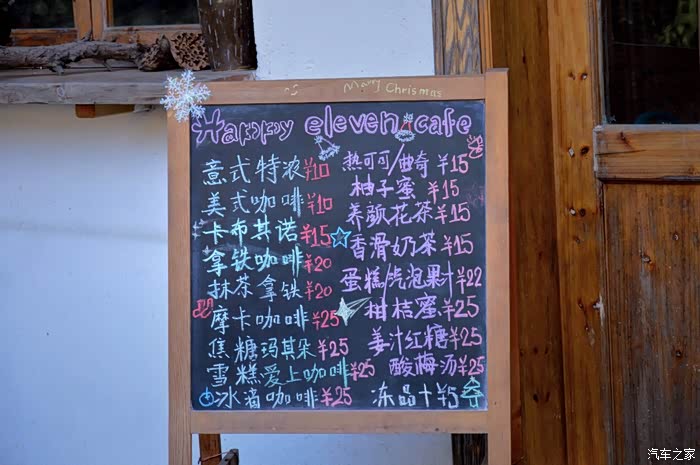 Merry Chrismas
Happy eleven cafe
意式特浓¥10
美式咖啡¥10
卡布其诺¥15
拿铁咖啡¥20
抹茶拿铁¥20
摩卡咖啡¥25
焦糖玛其朵¥25
雪糕爱上咖啡¥25
冰滴咖啡¥25
热可可/曲奇¥15
柚子蜜¥15
养颜花茶¥15
香滑奶茶¥15
蛋糕/汽泡果汁¥22
柑桔蜜¥25
姜汁红糖¥25
酸梅汤¥25
冻品+¥5
汽车之家